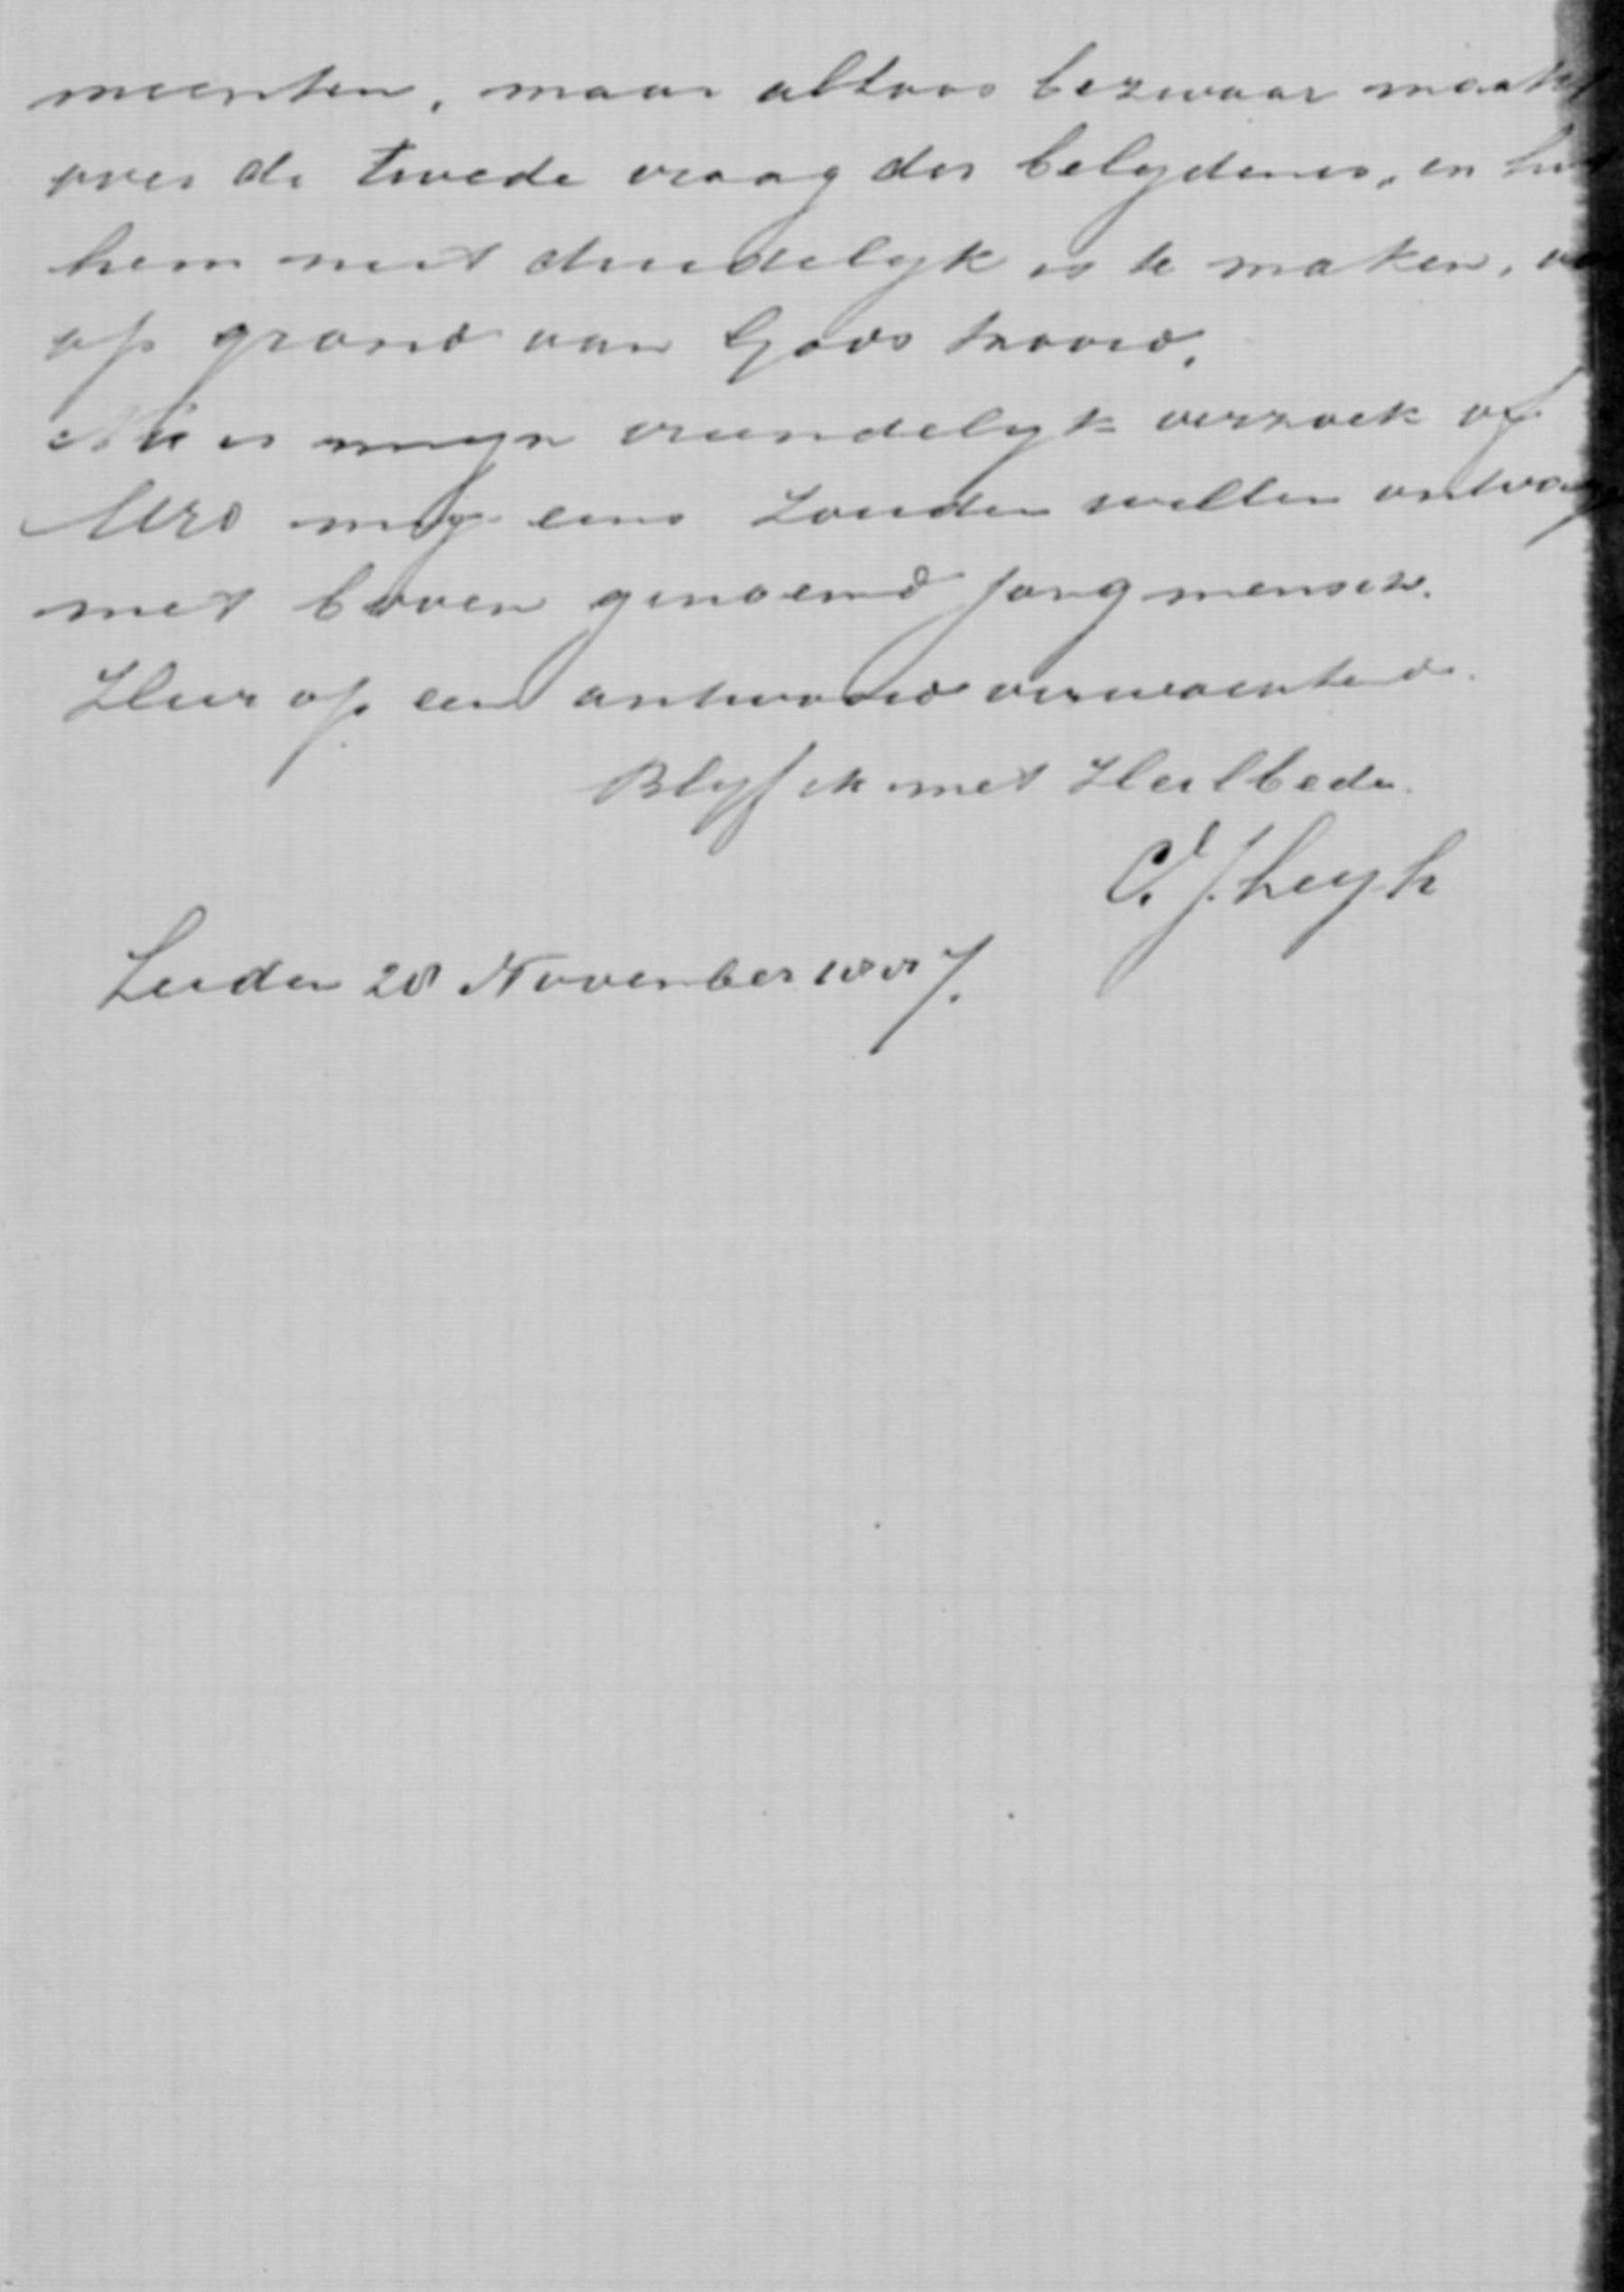 meenten, maar altoos bezwaar maakt
over de twede vraag der belydenis, en het
hem niet duidelyk is te maken,
op grond van Gods woord.
Nu is myn vriendelyk verzoek of
Uwe my eens zouden willen ontvang
met boven genoemd jongmensch.
Hier op een antwoord verwachtende.
Blyf ik met Heilbede.
C. J. Leyh
Leiden 28 November 1887.